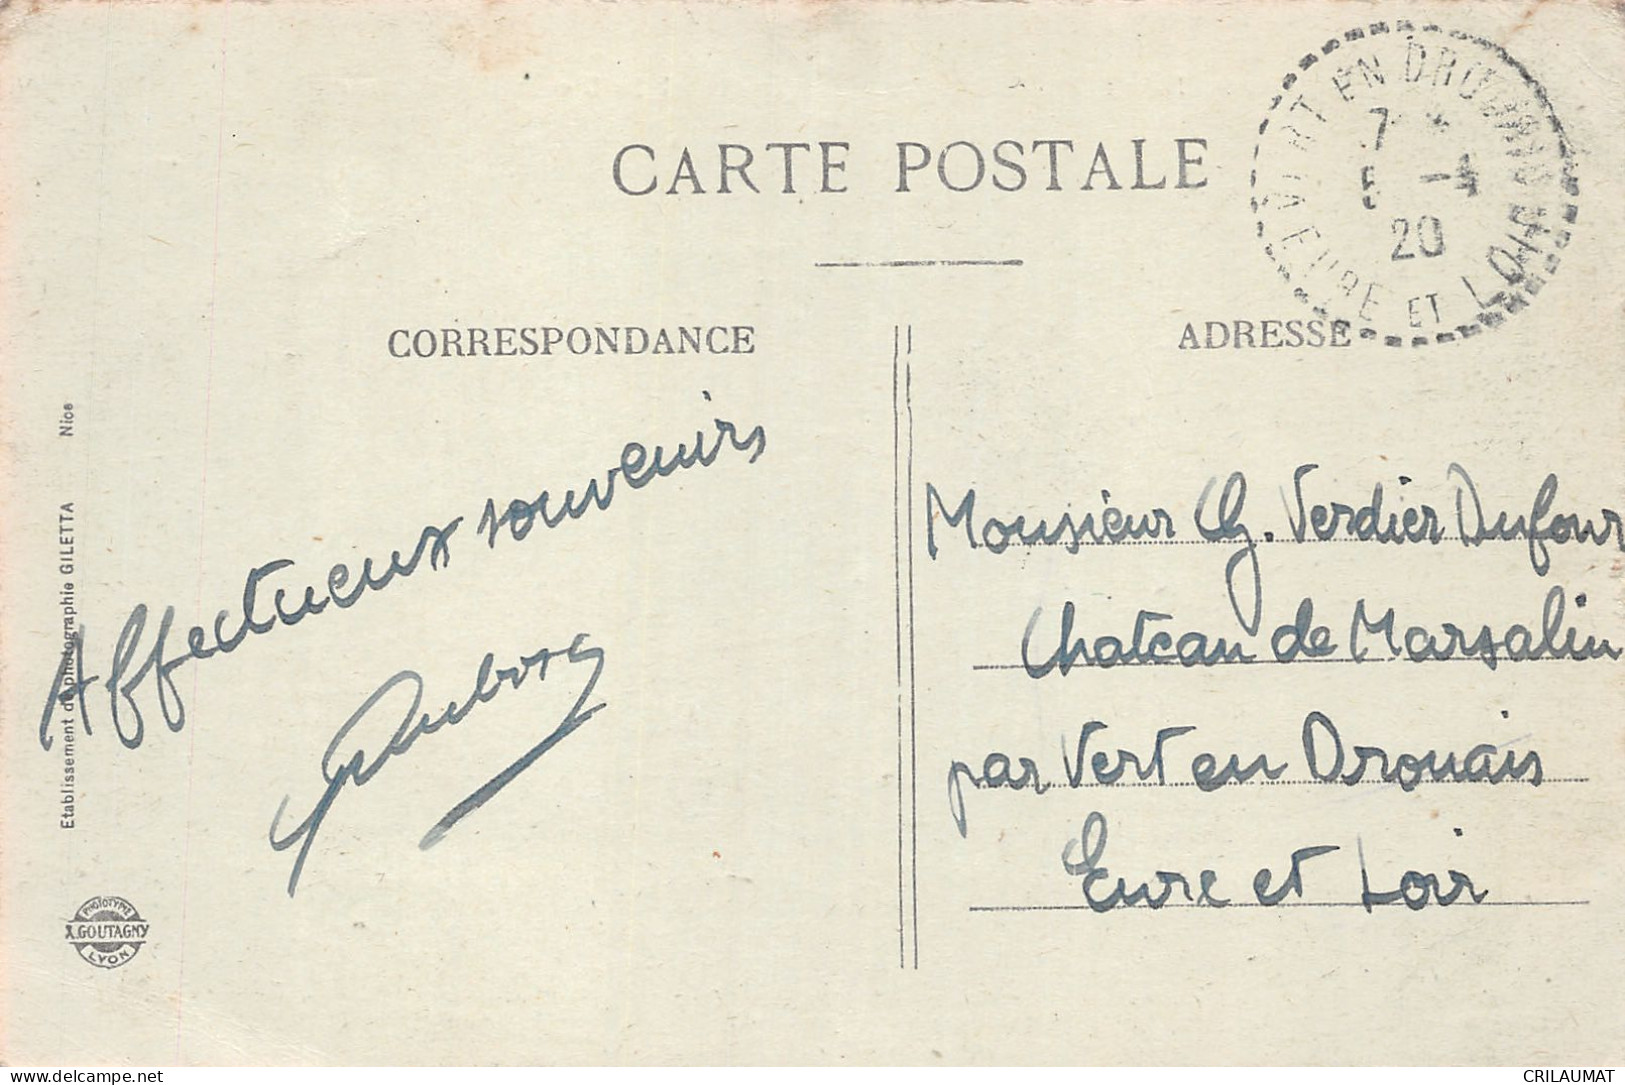 CARTE POSTALE
VERT EN DROUAIS
7
5 -4
20
EURE ET LOIR
CORRESPONDANCE
ADRESSE
Affectueux souvenirs
Monsieur Ch. Verdier Dufour
Chateau de Marsalin
par Vert en Drouais
Eure et Loir
Etablissement de photographie GILETTA Nice
PHOTOTYPIE
A. GOUTAGNY
LYON
delcampe.net
CRILAUMAT